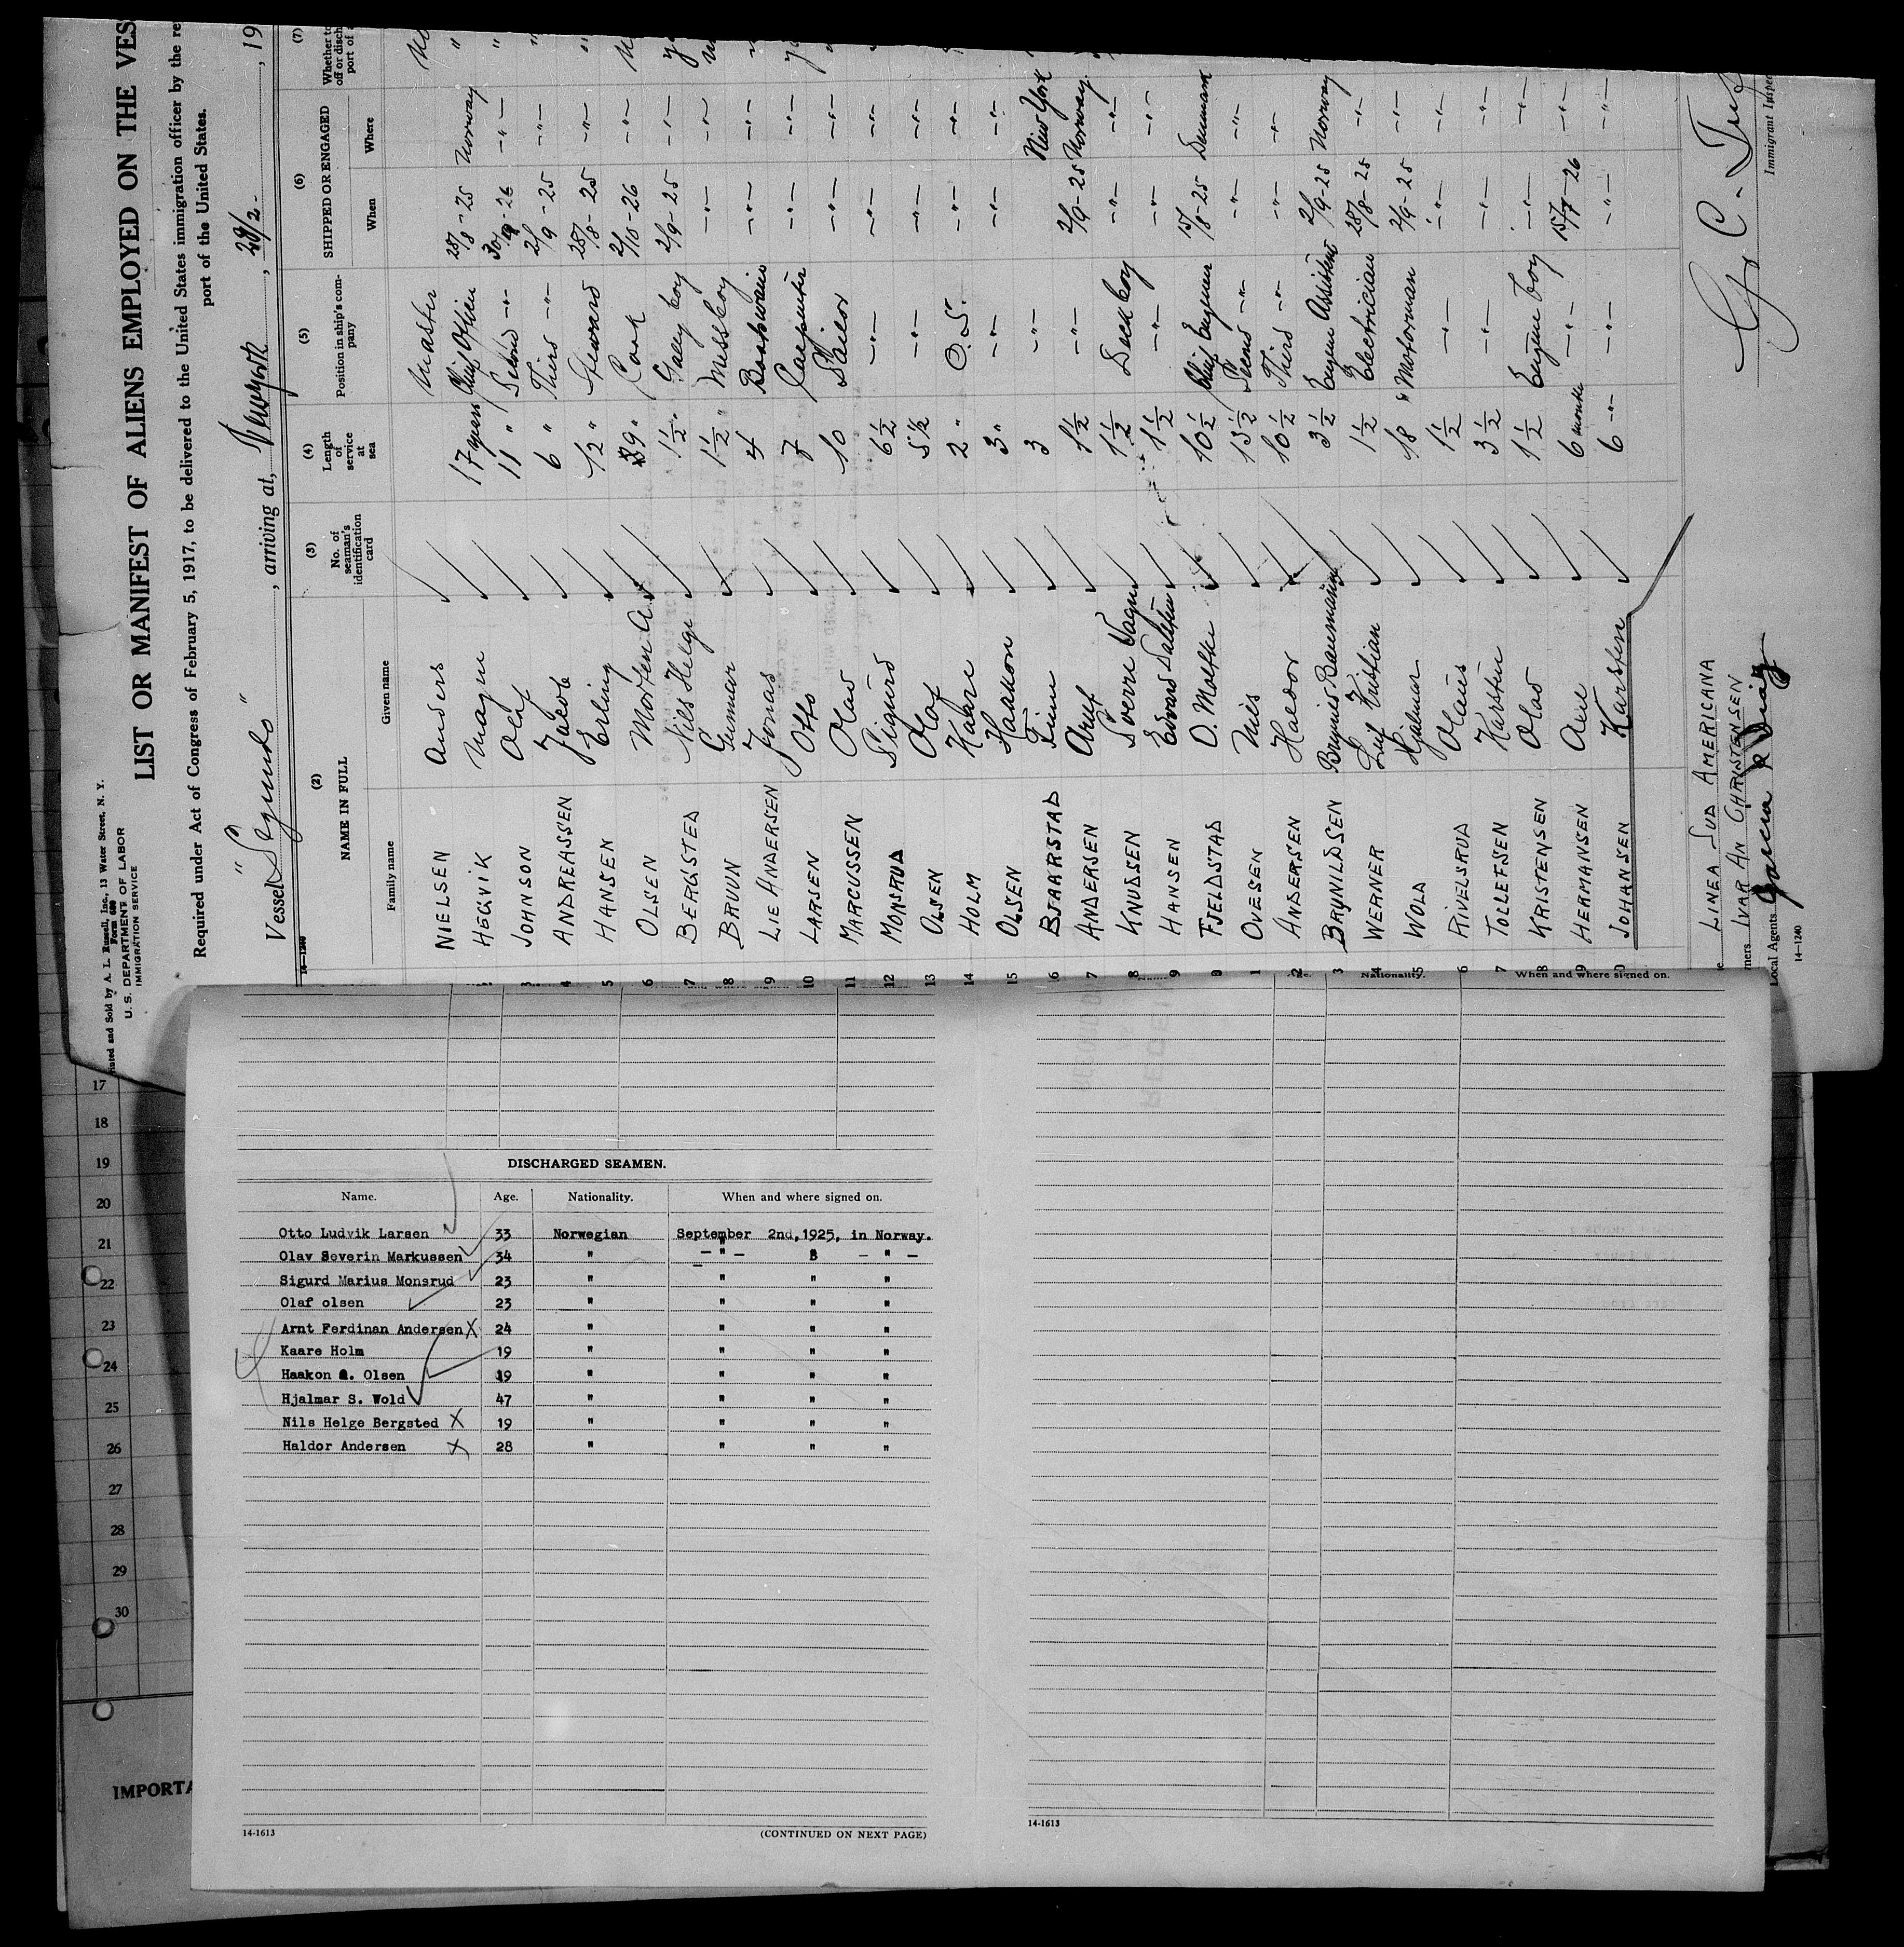 LIST OR MANIFEST OF ALIENS EMPLOYED ON THE VES
Required under Act of Congress of February 5, 1917, to be delivered to the United States immigration officer by the re
port of the United States.
U. S. DEPARTMENT OF LABOR
IMMIGRATION SERVICE
Vessel , arriving at, Newyork , 28/2- , 19
(2) (3) (4) (5) (6) (7)
NAME IN FULL No. of seaman's identification card Length of service at sea Position in ship's com- pany SHIPPED OR ENGAGED
Family name Given name When Where
NIELSEN Anders Master
HEGVIK Magne 17 years 28/8-25 Norway
JOHNSON Olaf 11 " -"-
ANDREASSEN Jacob 6 " 2/9-25 -"-
HANSEN Erling 12 " Steward 28/8-25 -"-
OLSEN Morten A. Cook 2/10-26 -"-
BERGSTED Nils Helge 1 1/2 " 2/9-25 -"-
BRUUN Gunnar 1 1/2 " Messboy -"- -"-
LIE ANDERSEN Jonas 4 -"- -"-
LARSEN Otto 7 -"- -"-
MARCUSSEN Olav 10 Sailor -"- -"-
12 MONSRUD Sigurd 6 1/2 -"- -"- -"-
13 OLSEN Olaf 5 1/2 -"- -"- -"-
14 HOLM Kaare 2 " O.S. -"- -"-
15 OLSEN Haakon 3 " -"- -"- -"-
16 BJAARSTAD Finn 3 -"- New York
ANDERSEN Arnt 1 1/2 -"- 2/9-25 Norway
KNUDSEN Sverre 1 1/2 Deck boy -"- -"-
HANSEN Edvard 1 1/2 -"- -"- -"-
FJELDSTAD O. Moltke 10 1/2 15/8-25 Denmark
OVESEN Nils 13 1/2 -"- -"-
ANDERSEN Haldor 10 1/2 -"- -"-
BRYNILDSEN 3 1/2 2/9-25 Norway
WERNER Leif Kristian 1 1/2 Electrician 28/8-25 -"-
WOLD Hjalmar 18 " Motorman 2/9-25 -"-
RIVELSRUD Olaus 1 1/2 -"- -"- -"-
TOLLEFSEN Karsten 3 1/2 -"- -"- -"-
KRISTENSEN Olav 1 1/2 Engine boy -"- -"-
HERMANSEN 6 months -"- 15/7-26 -"-
JOHANSEN Karsten 6 -"- -"- -"- -"-
LINEA SUD AMERICANA
IVAR AN CHRISTENSEN
Local Agents
Immigrant Inspec
14-1240
17
18
19
20
21
22
23
24
25
26
27
28
29
30
IMPORTA
Nationality. When and where signed on.
DISCHARGED SEAMEN.
Name. Age. Nationality. When and where signed on.
Otto Ludvik Larsen 33 Norwegian September 2nd,1925, in Norway.
Olav Severin Markussen 34 " - " - - " -
Sigurd Marius Monsrud 23 " " " "
Olaf olsen 23 " " " "
Arnt Ferdinan Andersen X 24 " " " "
Kaare Holm 19 " " " "
Haakon . Olsen 19 " " " "
Hjalmar S. Wold 47 " " " "
Nils Helge Bergsted X 19 " " " "
Haldor Andersen X 28 " " " "
14-1613 (CONTINUED ON NEXT PAGE)
14-1613